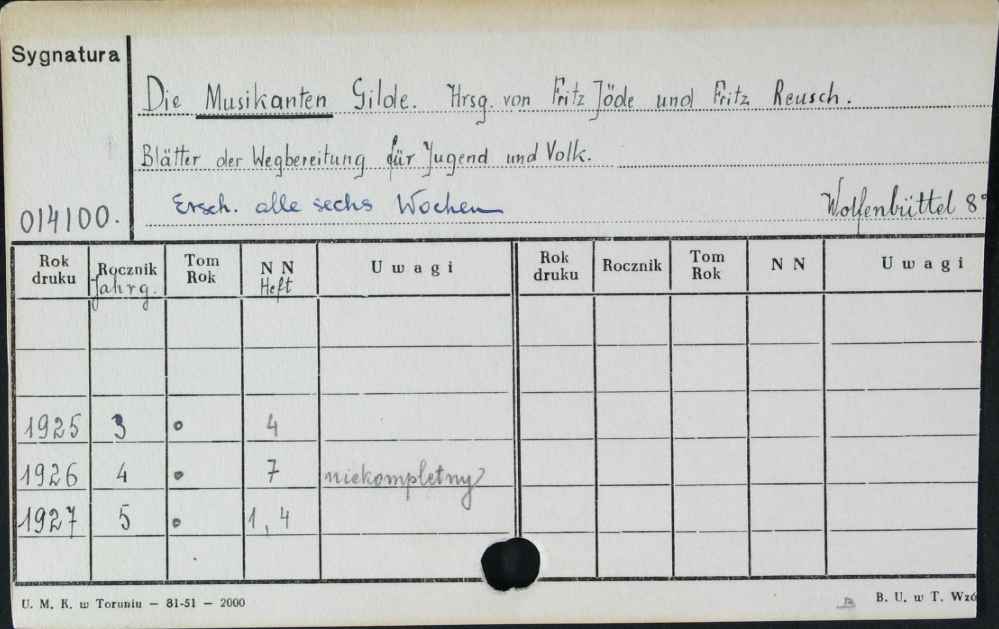 Sygnatura
Die Musikanten Gilde. Hrsg. von Fritz Jöde und Fritz Reusch.
Blätter der Wegbereitung für Jugend und Volk.
014100.
Ersch. alle sechs Wochen
Wolfenbüttel 8°
Rok druku Rocznik Jahrg. Tom Rok N N Heft Uwagi Rok druku Rocznik Tom Rok N N Uwagi
1925 3 4
1926 4 7 niekompletny
1927 5 1, 4
U. M. K. w Toruniu — 81-51 — 2000
B. U. w T. Wzó